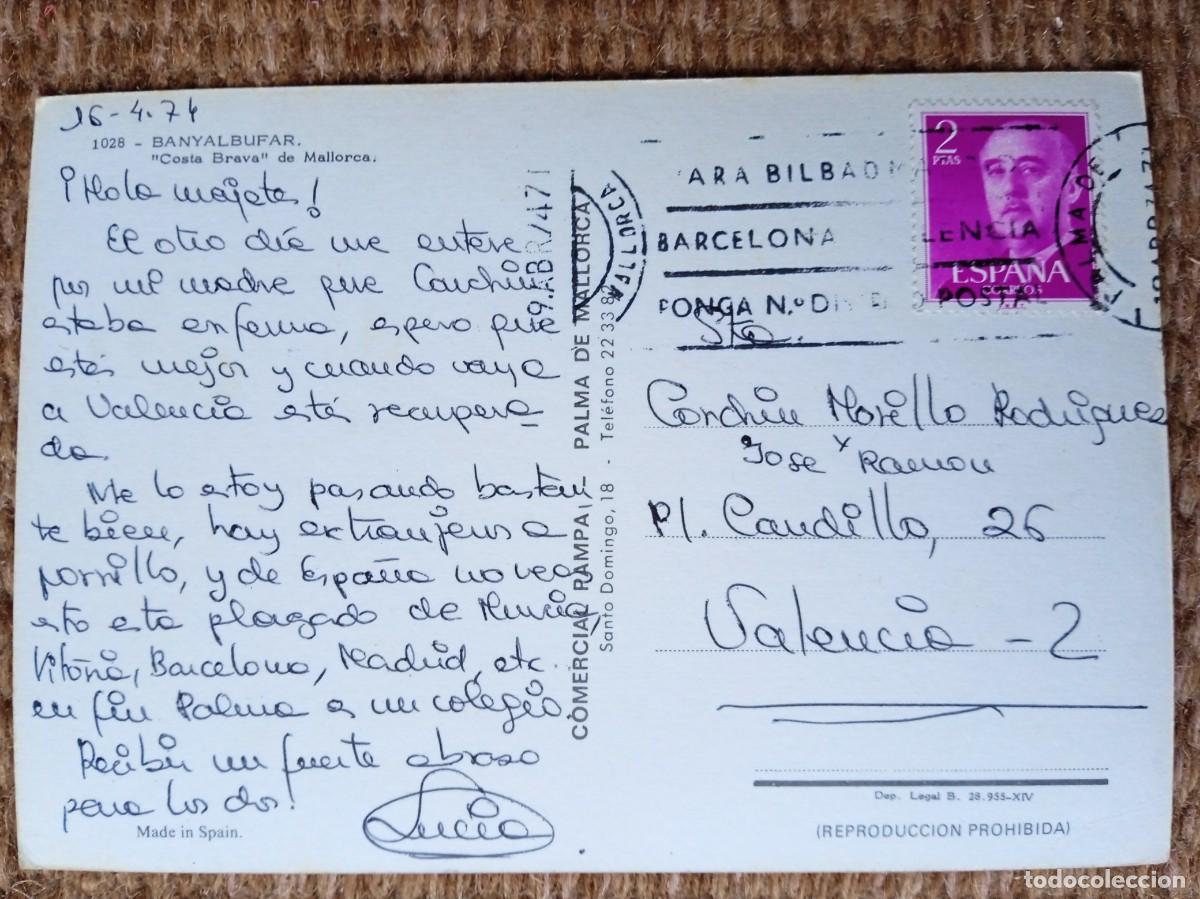 16-4.74
1028 - BANYALBUFAR.
"Costa Brava" de Mallorca.
¡Hola majete!
El otro día me entere
por mi madre que Conchin
estaba enferma, espero que
estés mejor y cuando vaya
a Valencia estés recupera-
da.
Me lo estoy pasando bastan-
te bien, hay extranjeros a
porrillo, y de España no veas
esto esta plagado de Murcia,
Vitoria, Barcelona, Madrid, etc.
en fin Palma es un colegio.
Recibir un fuerte abraso
para los dos!
Lucia
Made in Spain.
COMERCIAL RAMPA, - PALMA DE MALLORCA
Santo Domingo, 18 - Teléfono 22 33 82
9.ABR/47
MALLORCA
ARA BILBAO
BARCELONA LENCIA
PONGA N.º DI POSTA
PALMA DE
2
PTAS
ESPAÑA
CORREOS
Sta.
Conchin Morillo Rodriguez
y
Jose Ramon
Pl. Caudillo, 26
Valencia - 2
Dep. Legal B. 28.955-XIV
(REPRODUCCION PROHIBIDA)
todocoleccion